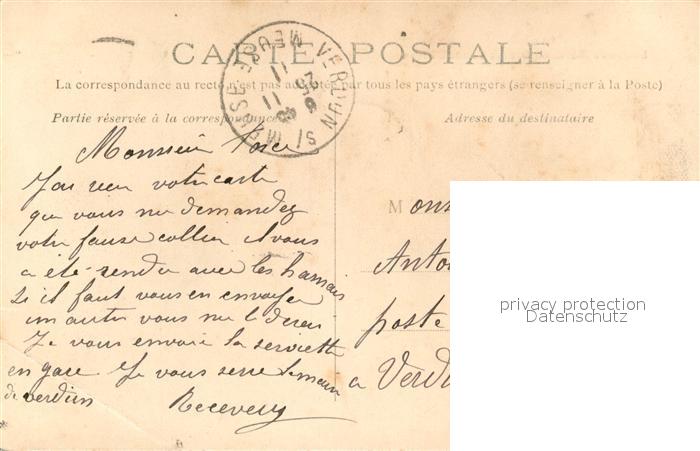 CARTE POSTALE
La correspondance au recto n'est pas acceptée par tous les pays étrangers (se renseigner à la Poste)
Partie réservée à la correspondance
Adresse du destinataire
VERDUN S/ MEUSE
Monsieur
J'ai reçu votre carte
que vous me demandez
votre fause collier il vous
a été rendu avec les harnais
si il faut vous en envoyer
un autre vous me le direz
Je vous envoie la serviette
en gare Je vous serre la main
de verdun Receveur
Mons
Anto
poste
a Verdu
privacy protection
Datenschutz